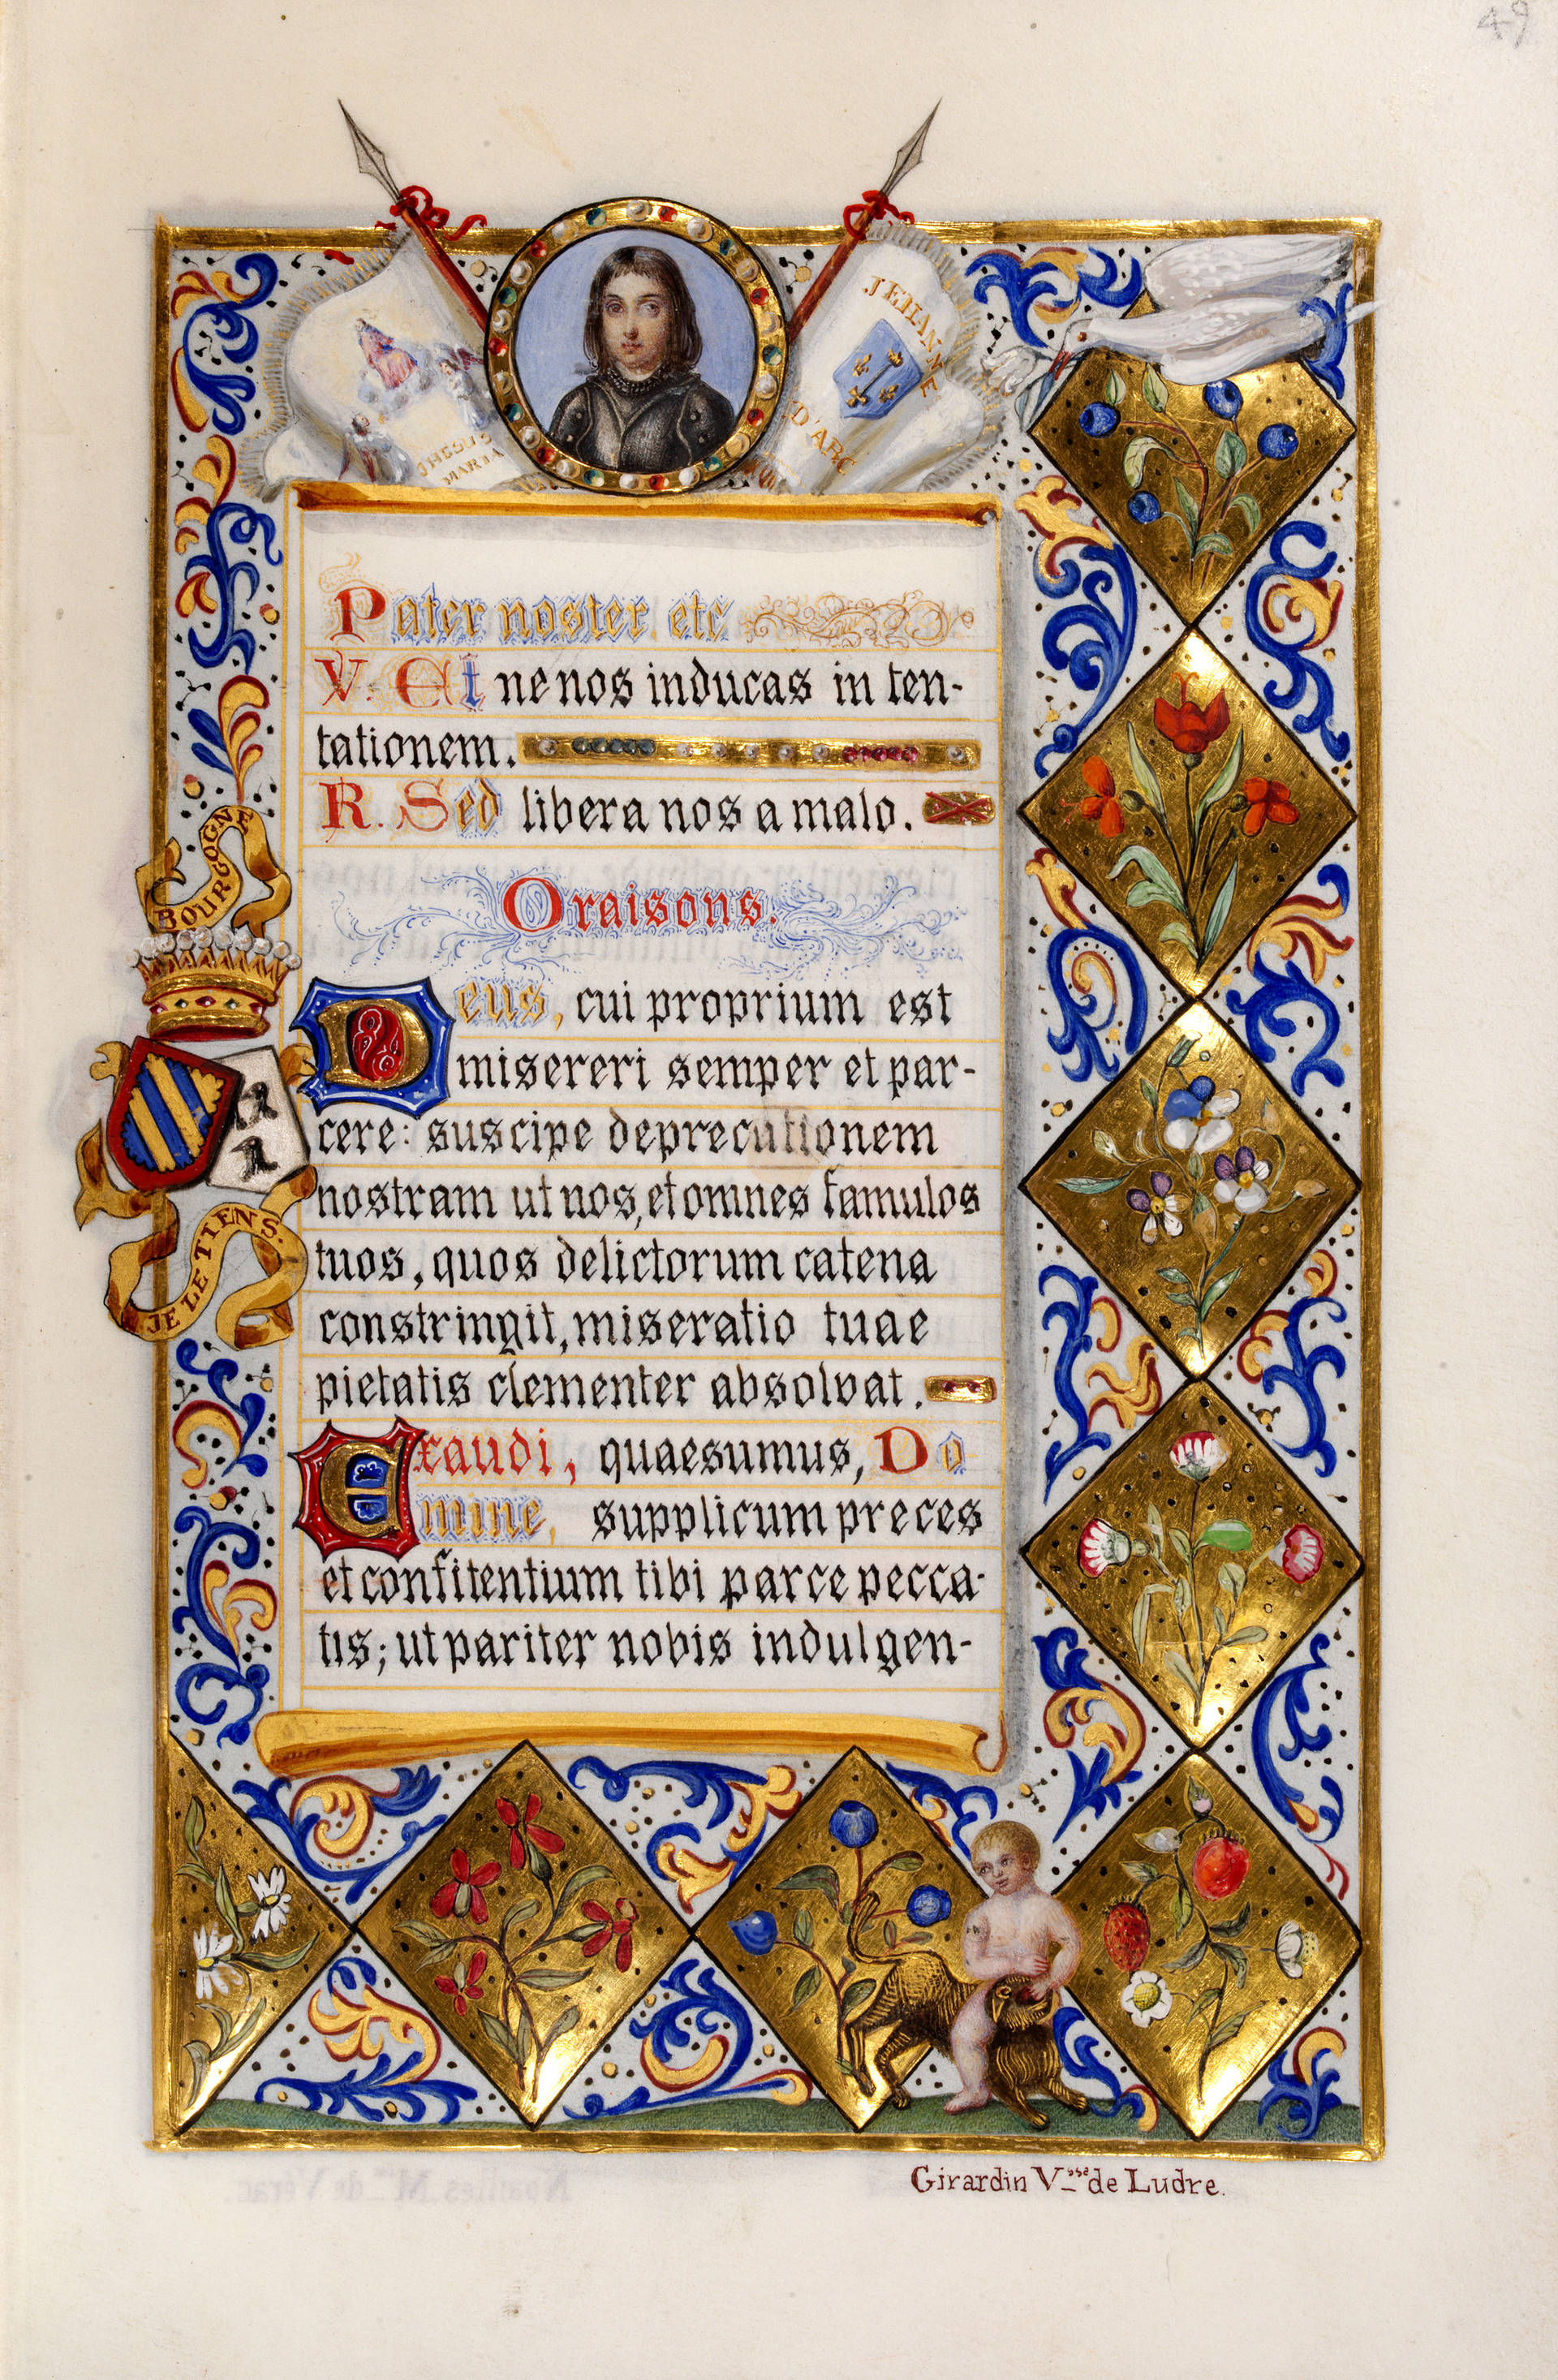 49
JHESUS
MARIA
JEHANNE
D'ARC
Pater noster etc
V. Et ne nos inducas in ten-
tationem.
R. Sed libera nos a malo.
Oraisons.
Deus, cui proprium est
misereri semper et par-
cere: suscipe deprecationem
nostram ut nos, et omnes famulos
tuos, quos delictorum catena
constringit, miseratio tuae
pietatis clementer absolvat.
Exaudi, quaesumus, Do
mine, supplicum preces
et confitentium tibi parce pecca-
tis; ut pariter nobis indulgen-
BOURGOGNE
JE LE TIENS.
Girardin Vsse de Ludre.